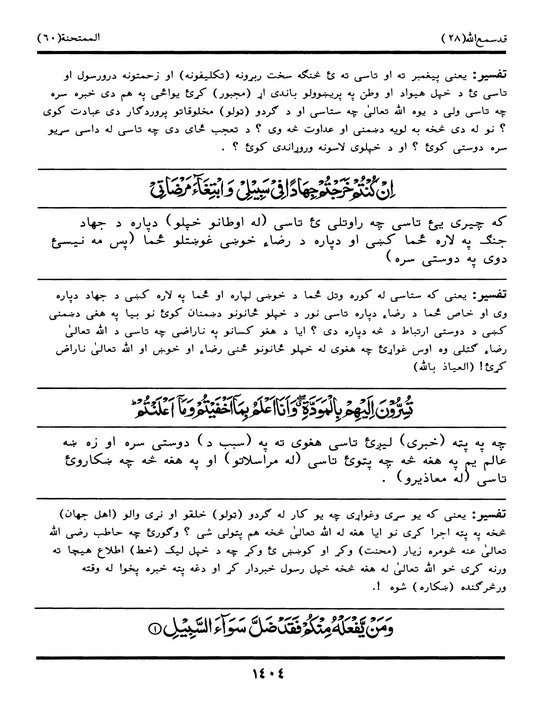 قدسمع الله (۲۸) الممتحنة (۶۰)
تفسير: يعنی پيغمبر ته او تاسی ته ئ څنګه سخت ربړونه (تکليفونه) او زحمتونه درورسول او
تاسی ئ د خپل هيواد او وطن په پريښوولو باندی اړ (مجبور) کړئ يواځی په هم دی خبره سره
چه تاسی ولی د يوه الله تعالیٰ چه ستاسی او د ګردو (ټولو) مخلوقاتو پروردګار دی عبادت کوی
؟ نو له دی څخه به لويه دښمنی او عداوت څه وی ؟ د تعجب ځای دی چه تاسی له داسی سړيو
سره دوستی کوئ ؟ او د خپلوی لاسونه وروړاندی کوئ ؟ .
اِنْ كُنْتُمْ خَرَجْتُمْ جِهَادًا فِىْ سَبِيْلِىْ وَابْتِغَآءَ مَرْضَاتِىْ
که چيری يئ تاسی چه راوتلی ئ تاسی (له اوطانو خپلو) دپاره د جهاد
جنګ په لاره ځما کښی او دپاره د رضاء خوښی غوښتلو ځما (پس مه نيسئ
دوی په دوستی سره)
تفسير: يعنی که ستاسی له کوره وتل ځما د خوښی لپاره او ځما په لاره کښی د جهاد دپاره
وی او خاص ځما د رضاء دپاره تاسی نور د خپلو ځانونو دښمنان کوئ نو بيا په هغی دښمنی
کښی د دوستی ارتباط د څه دپاره دی ؟ ايا د هغو کسانو په ناراضی چه تاسی د الله تعالیٰ
رضاء ګټلی وه اوس غواړئ چه هغوی له خپلو ځانونو ځنی رضاء او خوښ او الله تعالیٰ ناراض
کړئ! (العياذ بالله)
تُسِرُّوْنَ اِلَيْهِمْ بِالْمَوَدَّةِ وَاَنَا اَعْلَمُ بِمَآ اَخْفَيْتُمْ وَمَآ اَعْلَنْتُمْ
چه په پټه (خبری) ليږئ تاسی هغوی ته په (سبب د) دوستی سره او زه ښه
عالم يم په هغه څه چه پټوئ تاسی (له مراسلاتو) او په هغه څه چه ښکاروئ
تاسی (له معاذيرو) .
تفسير: يعنی که يو سړی وغواړی چه يو کار له ګردو (ټولو) خلقو او نړی والو (اهل جهان)
څخه په پټه اجرا کړی نو ايا هغه له الله تعالیٰ څخه هم پټولی شی ؟ وګورئ چه حاطب رضی الله
تعالیٰ عنه څومره زيار (محنت) وکړ او کوښښ ئ وکړ چه د خپل ليک (خط) اطلاع هيچا ته
ورنه کړی خو الله تعالیٰ له هغه څخه خپل رسول خبردار کړ او دغه پټه خبره پخوا له وقته
ورڅرګنده (ښکاره) شوه !.
وَمَنْ يَّفْعَلْهُ مِنْكُمْ فَقَدْ ضَلَّ سَوَآءَ السَّبِيْلِ ①
۱۴۰۴